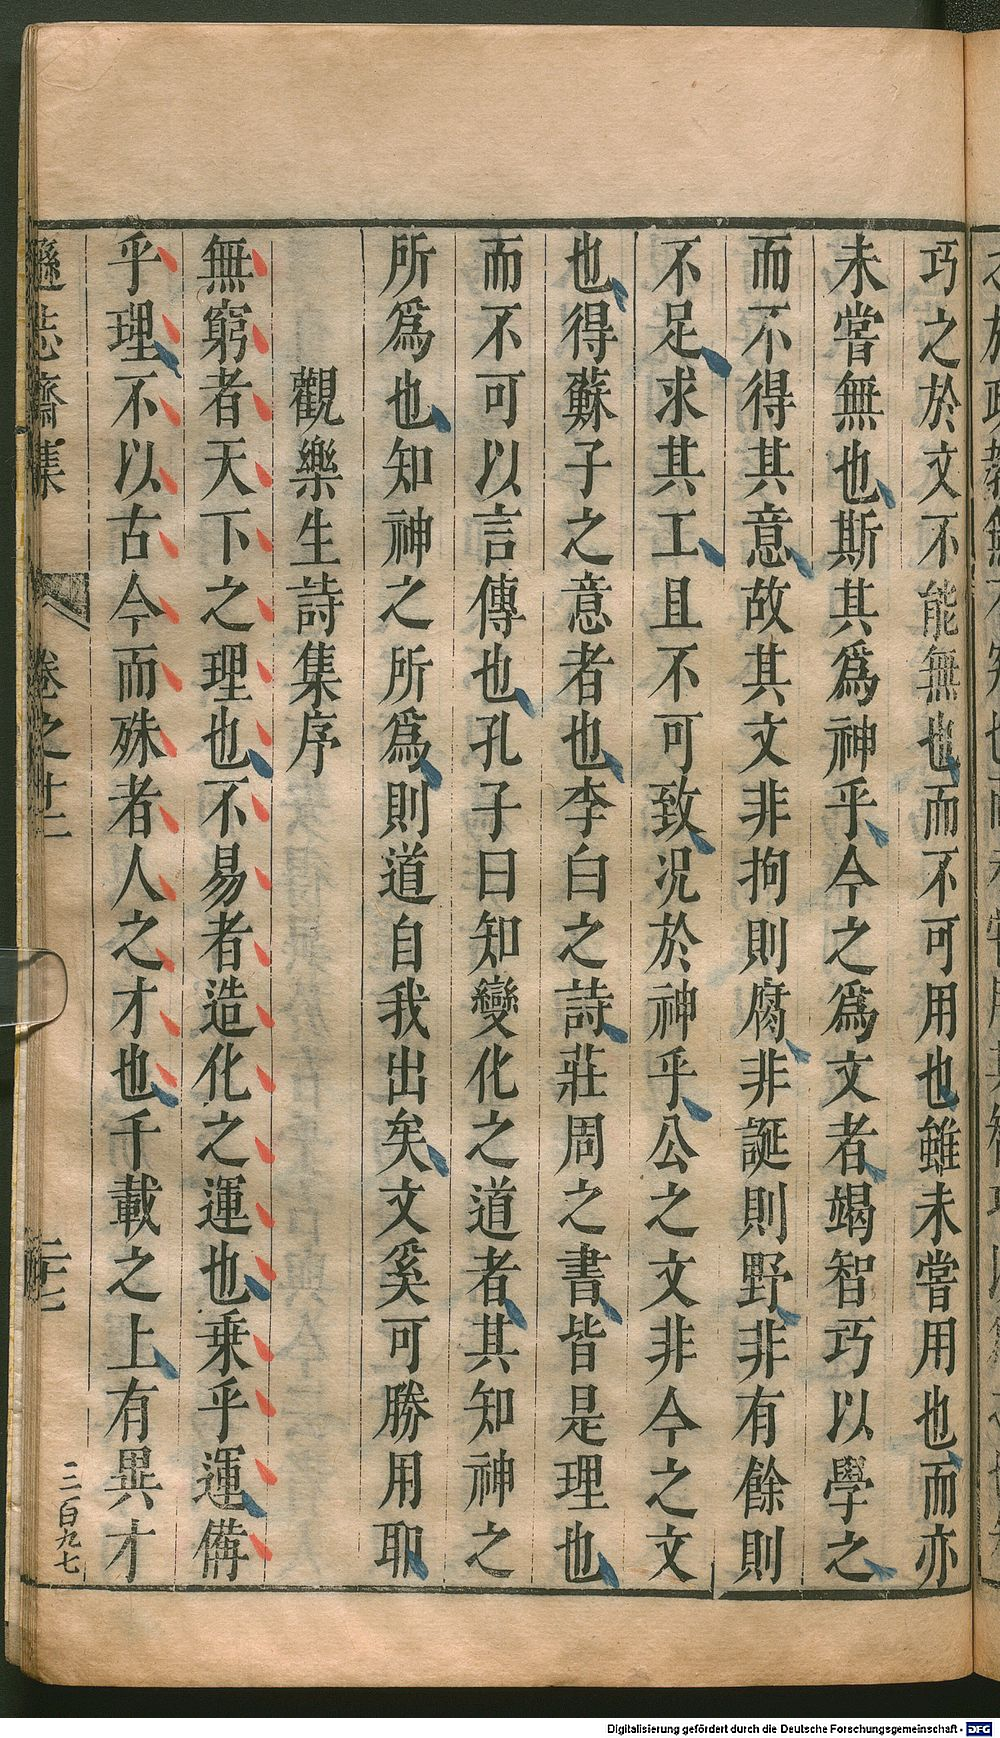 巧之於文不能無也而不可用也雖未嘗用也而亦
未嘗無也斯其爲神乎今之爲文者竭智巧以學之
而不得其意故其文非拘則腐非誕則野非有餘則
不足求其工且不可致況於神乎公之文非今之文
也得蘇子之意者也李白之詩莊周之書皆是理也
而不可以言傳也孔子曰知變化之道者其知神之
所爲也知神之所爲則道自我出矣文奚可勝用耶
觀樂生詩集序
無窮者天下之理也不易者造化之運也乗乎運備
乎理不以古今而殊者人之才也千載之上有異才
遜志齋集 卷之十二 二十七
二百九七
Digitalisierung gefördert durch die Deutsche Forschungsgemeinschaft - DFG